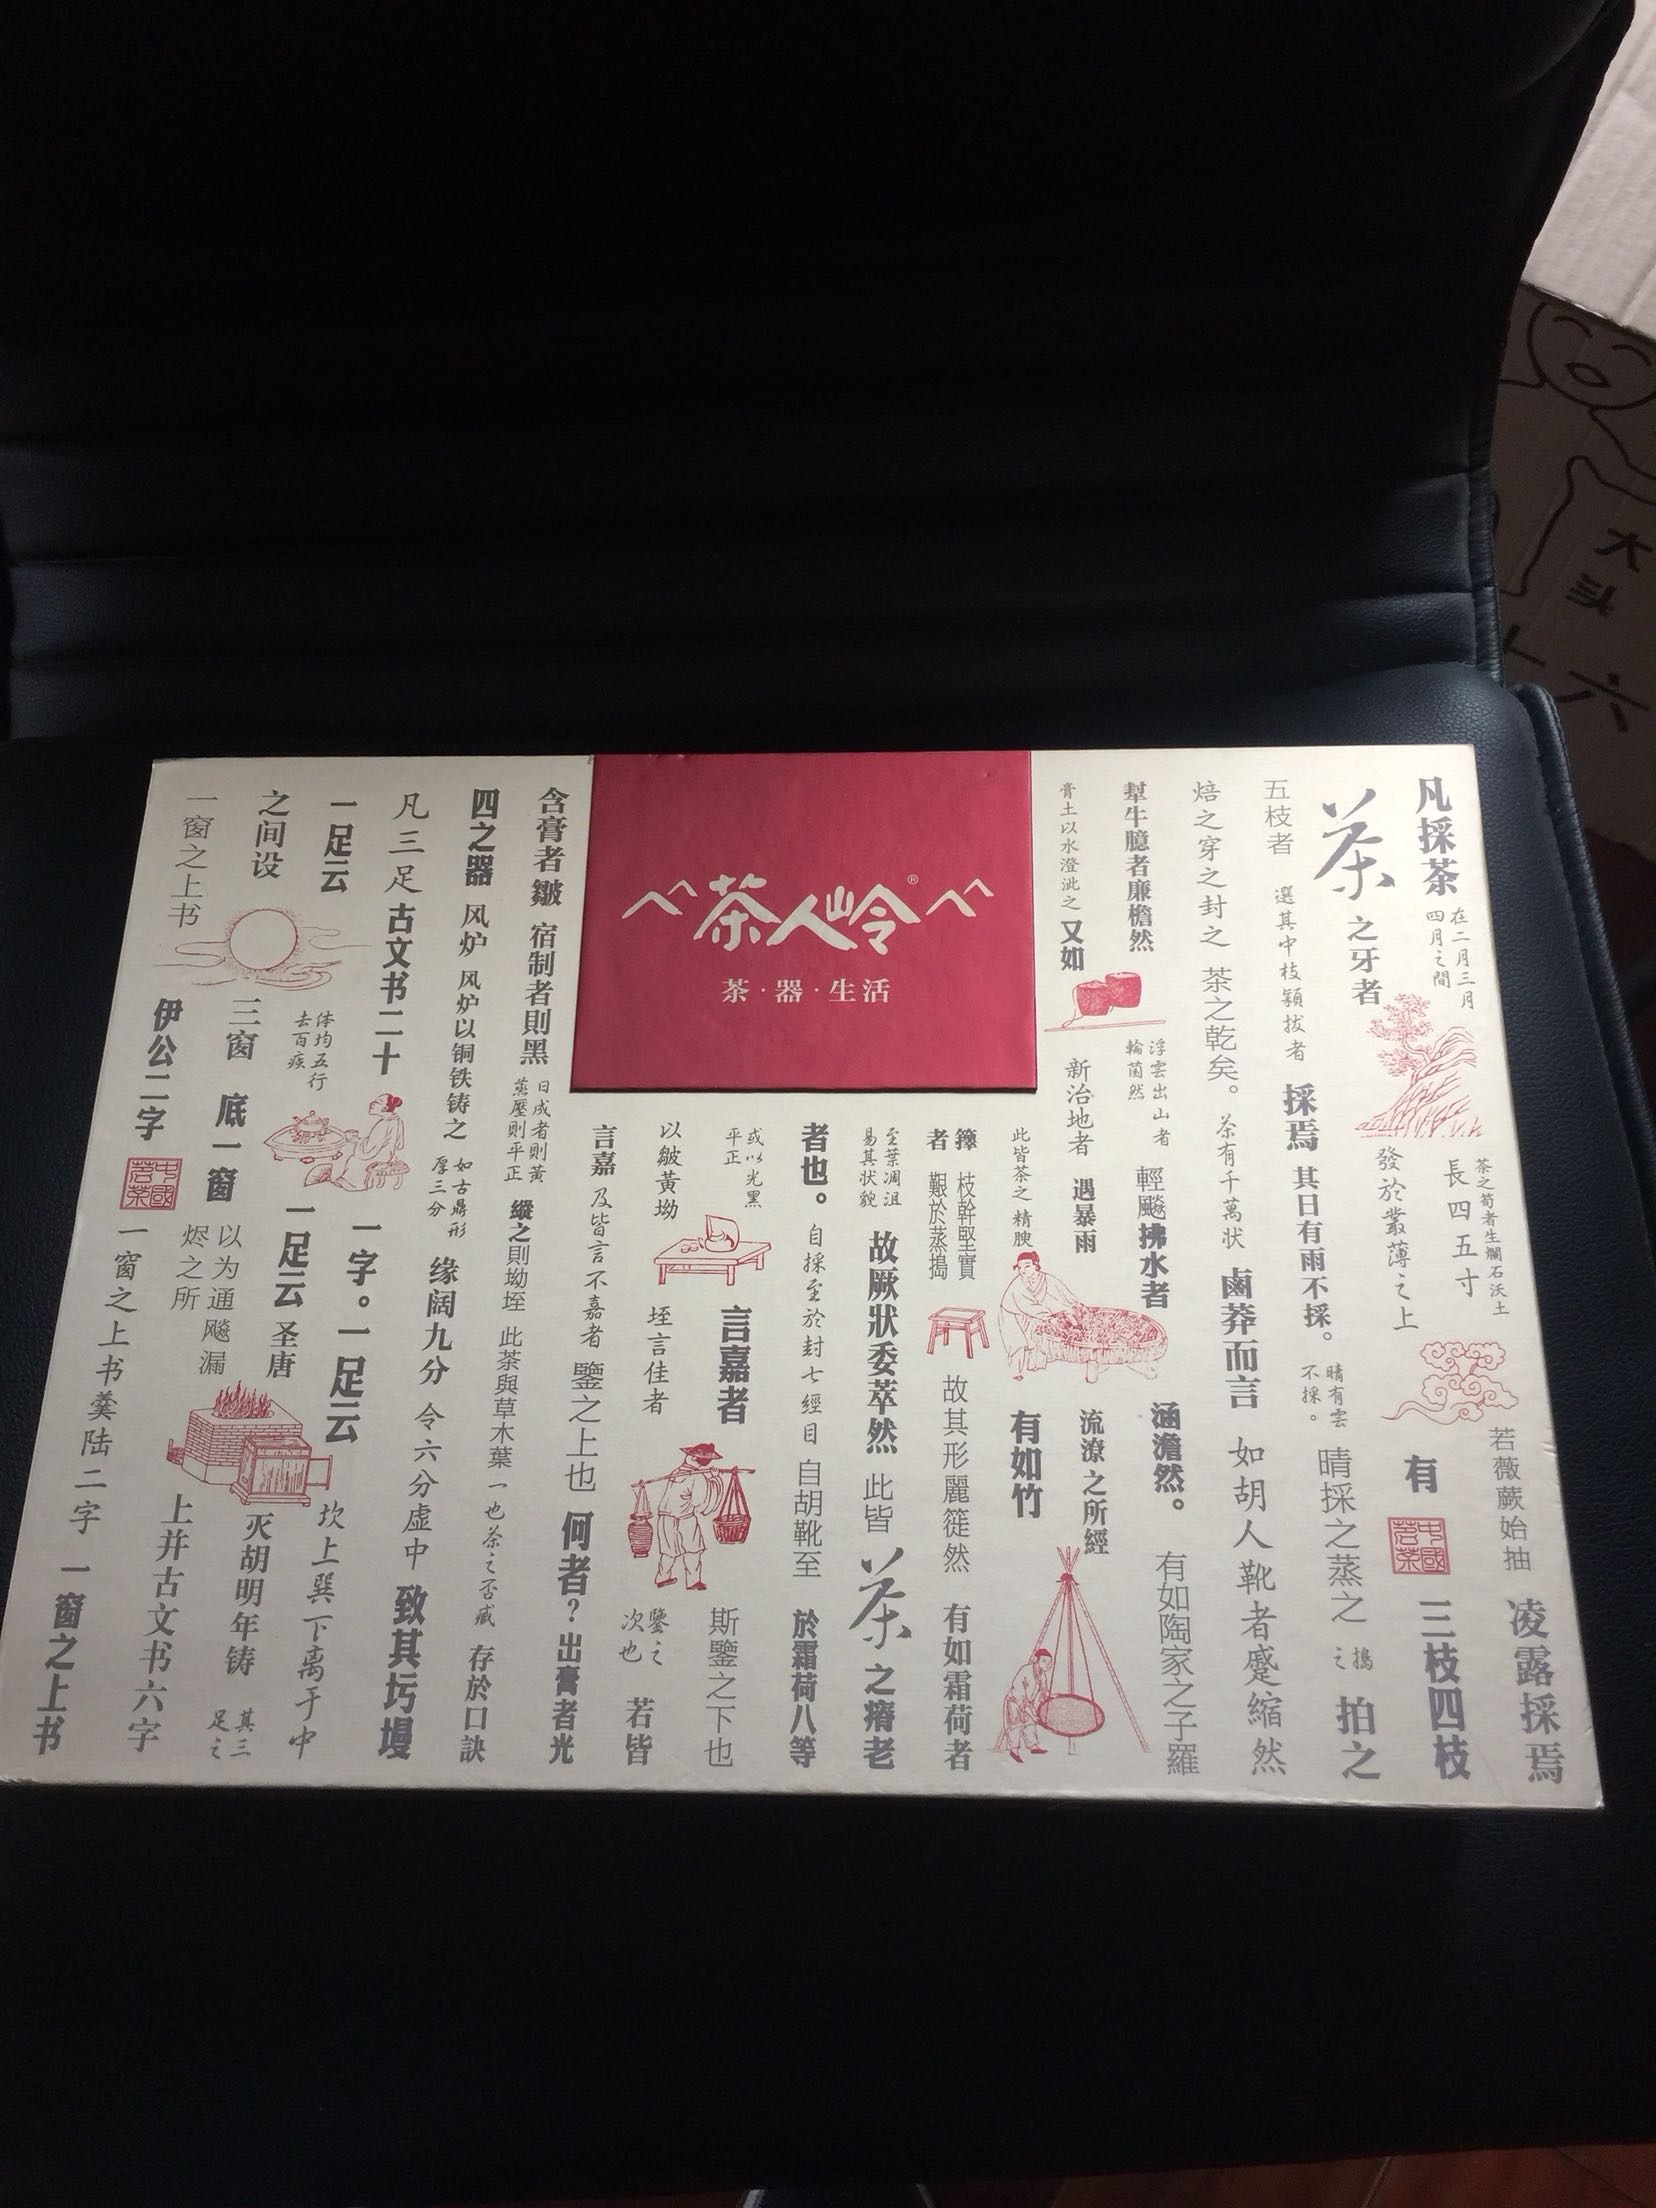 茶人岭®
茶·器·生活
凡採茶
在二月三月
四月之間
茶之筍者生爛石沃土
長四五寸
若薇蕨始抽
凌露採焉
茶之牙者
發於叢薄之上
有
中國茗茶
三枝四枝
五枝者
選其中枝穎拔者
採焉
其日有雨不採。
晴有雲
不採。
晴採之蒸之
搗之
拍之
焙之穿之封之
茶之乾矣。
茶有千萬狀
鹵莽而言
如胡人靴者蹙縮然
犎牛臆者廉檐然
浮雲出山者
輪菌然
輕飈拂水者
涵澹然。
有如陶家之子羅
膏土以水澄泚之
又如
新治地者
遇暴雨
流潦之所經
此皆茶之精腴
有如竹
籜者
枝幹堅實
艱於蒸搗
故其形麗簁然
有如霜荷者
至葉凋沮
易其狀貌
故厥狀委萃然
此皆
茶之瘠老
者也。
自採至於封七經目
自胡靴至
於霜荷八等
或以光黑
平正
言嘉者
斯鑒之下也
以皺黃坳
垤言佳者
鑒之
次也
若皆
言嘉
及皆言不嘉者
鑒之上也
何者？
出膏者光
含膏者皺
宿制者則黑
日成者則黃
蒸壓則平正
縱之則坳垤
此茶與草木葉
一也茶之否臧
存於口訣
四之器
风炉
风炉以铜铁铸之
如古鼎形
厚三分
缘阔九分
令六分虚中
致其圬墁
凡三足
古文书二十
一字。
一足云
坎上巽下离于中
一足云
体均五行
去百疾
一足云
圣唐
灭胡明年铸
其三
足之
之间设
三窗
底一窗
以为通飚漏
烬之所
上并古文书六字
一窗之上书
伊公二字
中國茗茶
一窗之上书羹陆二字
一窗之上书